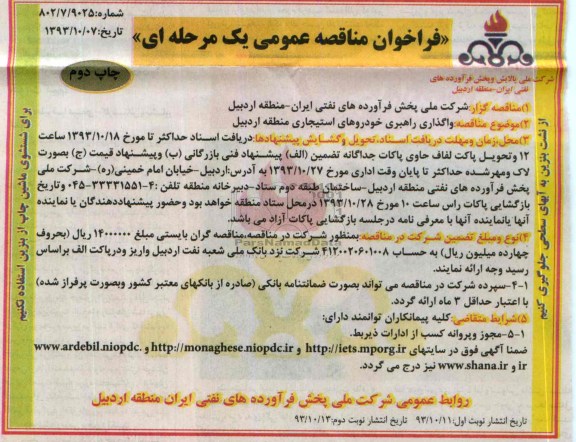 شماره:۸۰۲/۷/۹۰۲۵
تاریخ:۱۳۹۳/۱۰/۰۷
«فراخوان مناقصه عمومی یک مرحله ای»
چاپ دوم
شرکت ملی پالایش وپخش فرآورده های
نفتی ایران-منطقه اردبیل
۱)مناقصه گزار:شرکت ملی پخش فرآورده های نفتی ایران-منطقه اردبیل
۲)موضوع مناقصه:واگذاری راهبری خودروهای استیجاری منطقه اردبیل
۳)محل،زمان ومهلت دریافت اسناد،تحویل وگشایش پیشنهادها:دریافت اسناد حداکثر تا مورخ ۱۳۹۳/۱۰/۱۸ ساعت
۱۲ وتحویل پاکت لفاف حاوی پاکات جداگانه تضمین (الف) پیشنهاد فنی بازرگانی (ب) وپیشنهاد قیمت (ج) بصورت
لاک ومهرشده حداکثر تا پایان وقت اداری مورخ ۱۳۹۳/۱۰/۲۷ به آدرس:اردبیل-خیابان امام خمینی(ره)-شرکت ملی
پخش فرآورده های نفتی منطقه اردبیل-ساختمان طبقه دوم ستاد-دبیرخانه منطقه تلفن :۴-۳۳۳۳۱۵۵۱-۰۴۵ وتاریخ
بازگشایی پاکات راس ساعت ۱۰ مورخ ۱۳۹۳/۱۰/۲۸ درمحل ستاد منطقه خواهد بود وحضور پیشنهاددهندگان یا نماینده
آنها بانماینده آنها با معرفی نامه درجلسه بازگشایی پاکات آزاد می باشد.
۴)نوع ومبلغ تضمین شرکت در مناقصه:بمنظور شرکت در مناقصه،مناقصه گران بایستی مبلغ ۱۴۰۰۰۰۰۰ ریال (بحروف
چهارده میلیون ریال) به حساب ۴۱۲۰۰۲۰۶۰۱۰۰۸ شرکت نزد بانک ملی شعبه نفت اردبیل واریز ودرپاکت الف براساس
رسید وجه ارائه نمایند.
۴-۱-سپرده شرکت در مناقصه می تواند بصورت ضمانتنامه بانکی (صادره از بانکهای معتبر کشور وبصورت پرفراژ شده)
با اعتبار حداقل ۳ ماه ارائه گردد.
۵)شرایط متقاضی:کلیه پیمانکاران توانمند دارای:
۵-۱-مجوز وپروانه کسب از ادارات ذیربط.
ضمنا آگهی فوق در سایتهای http://iets.mporg.ir و http://monaghese.niopdc.ir و www.ardebil.niopdc.
ir و www.shana.ir نیز درج می گردد.
روابط عمومی شرکت ملی پخش فرآورده های نفتی ایران منطقه اردبیل
تاریخ انتشار نوبت اول: ۹۳/۱۰/۱۱ تاریخ انتشار نوبت دوم: ۹۳/۱۰/۱۳
از نشت بنزین به آبهای سطحی جلوگیری کنیم
برای شستشوی ماشین وچاپ از بنزین استفاده نکنیم
ParsNamadData